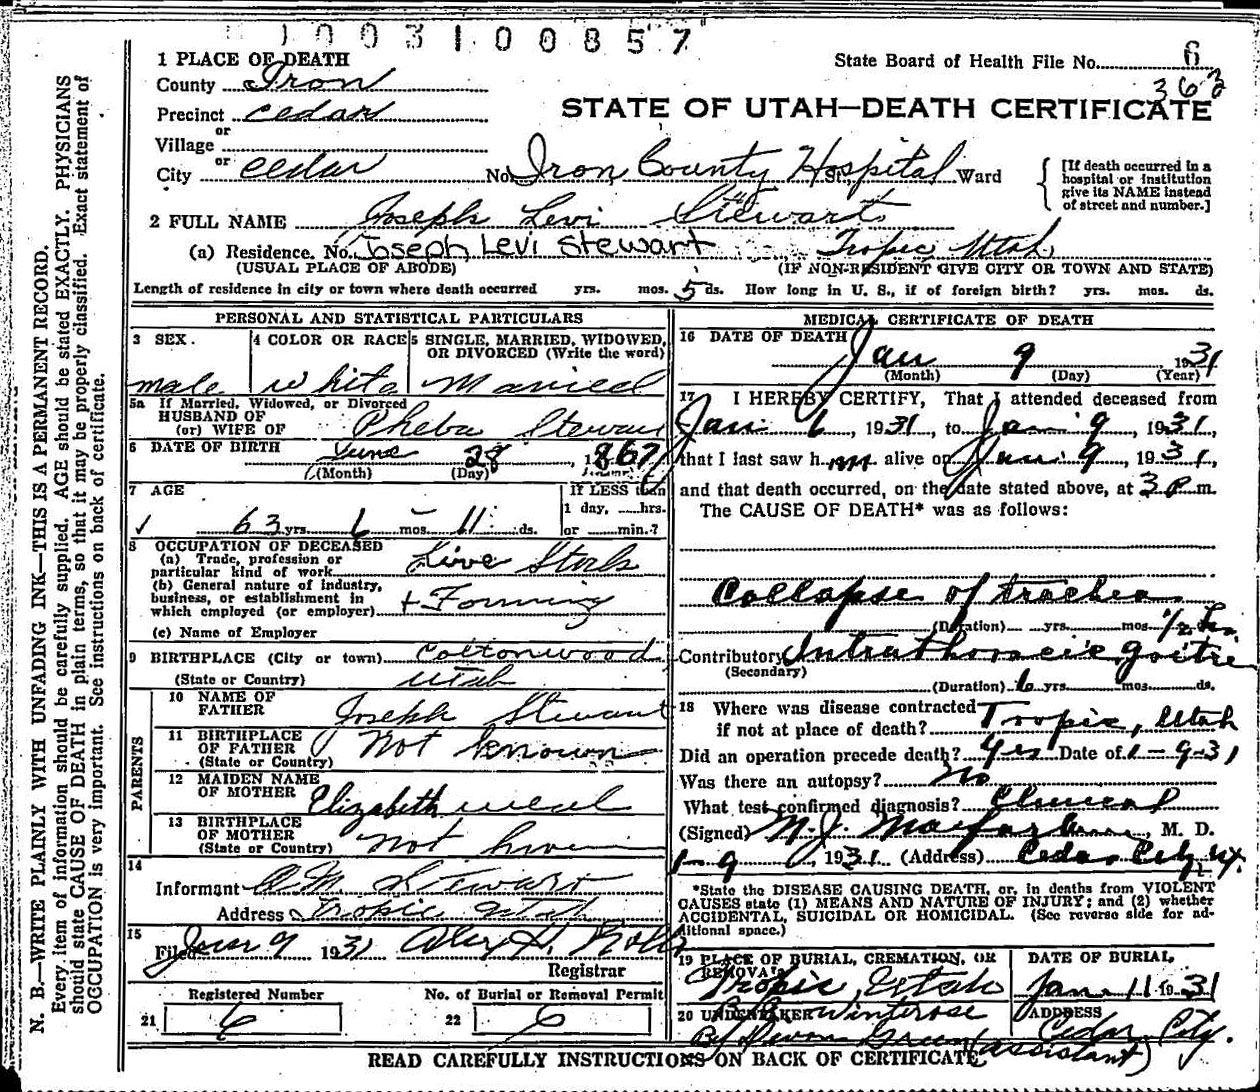 1003100857
1 PLACE OF DEATH
State Board of Health File No. 6
County Iron
363
Precinct Cedar
STATE OF UTAH—DEATH CERTIFICATE
or
Village
or
City Cedar No. Iron County Hospital St. Ward
[If death occurred in a hospital or institution give its NAME instead of street and number.]
2 FULL NAME Joseph Levi Stewart
(a) Residence. No. Joseph Levi Stewart Tropic Utah
(USUAL PLACE OF ABODE) (IF NON-RESIDENT GIVE CITY OR TOWN AND STATE)
Length of residence in city or town where death occurred yrs. mos. 5 ds. How long in U. S., if of foreign birth? yrs. mos. ds.
PERSONAL AND STATISTICAL PARTICULARS
3 SEX. 4 COLOR OR RACE 5 SINGLE, MARRIED, WIDOWED, OR DIVORCED (Write the word)
male white Married
5a If Married, Widowed, or Divorced
HUSBAND OF
(or) WIFE OF Pheba Stewart
6 DATE OF BIRTH June 28, 1867
(Month) (Day)
7 AGE IF LESS than
1 day, hrs.
63 yrs 6 mos. 11 ds. or min.?
8 OCCUPATION OF DECEASED
(a) Trade, profession or
particular kind of work Live Stock
(b) General nature of industry,
business, or establishment in
which employed (or employer) + Farming
(c) Name of Employer
9 BIRTHPLACE (City or town) Cottonwood
(State or Country) Utah
PARENTS
10 NAME OF
FATHER Joseph Stewart
11 BIRTHPLACE
OF FATHER Not Known
(State or Country)
12 MAIDEN NAME
OF MOTHER Elizabeth
13 BIRTHPLACE
OF MOTHER
(State or Country) Not
14
Informant Stewart
Address Tropic Utah
15
Filed Jan 9 1931 Alex H. Rollo
Registrar
Registered Number No. of Burial or Removal Permit
21 6 22 6
MEDICAL CERTIFICATE OF DEATH
16 DATE OF DEATH
Jan 9 1931
(Month) (Day) (Year)
17 I HEREBY CERTIFY, That I attended deceased from
Jan 6, 1931, to Jan 9, 1931,
that I last saw him alive on Jan 9, 1931,
and that death occurred, on the date stated above, at 3 P.m.
The CAUSE OF DEATH* was as follows:
Collapse of trachea
(Duration) yrs. mos. 1/2 hr.
Contributory Intrathoracic goitre
(Secondary)
(Duration) 6 yrs. mos. ds.
18 Where was disease contracted
if not at place of death? Tropic, Utah
Did an operation precede death? Yes Date of 1-9-31
Was there an autopsy? No
What test confirmed diagnosis? Clinical
(Signed) M. J. Macfarlane, M. D.
1-9, 1931 (Address) Cedar City, Ut.
*State the DISEASE CAUSING DEATH, or, in deaths from VIOLENT
CAUSES state (1) MEANS AND NATURE OF INJURY; and (2) whether
ACCIDENTAL, SUICIDAL OR HOMICIDAL. (See reverse side for ad-
ditional space.)
19 PLACE OF BURIAL, CREMATION, OR REMOVAL DATE OF BURIAL,
Tropic, Utah Jan 11 1931
20 UNDERTAKER Winterose ADDRESS
By Green (assistant) Cedar City.
READ CAREFULLY INSTRUCTIONS ON BACK OF CERTIFICATE.
N. B.—WRITE PLAINLY WITH UNFADING INK—THIS IS A PERMANENT RECORD.
Every item of information should be carefully supplied. AGE should be stated EXACTLY. PHYSICIANS
should state CAUSE OF DEATH in plain terms, so that it may be properly classified. Exact statement of
OCCUPATION is very important. See instructions on back of certificate.